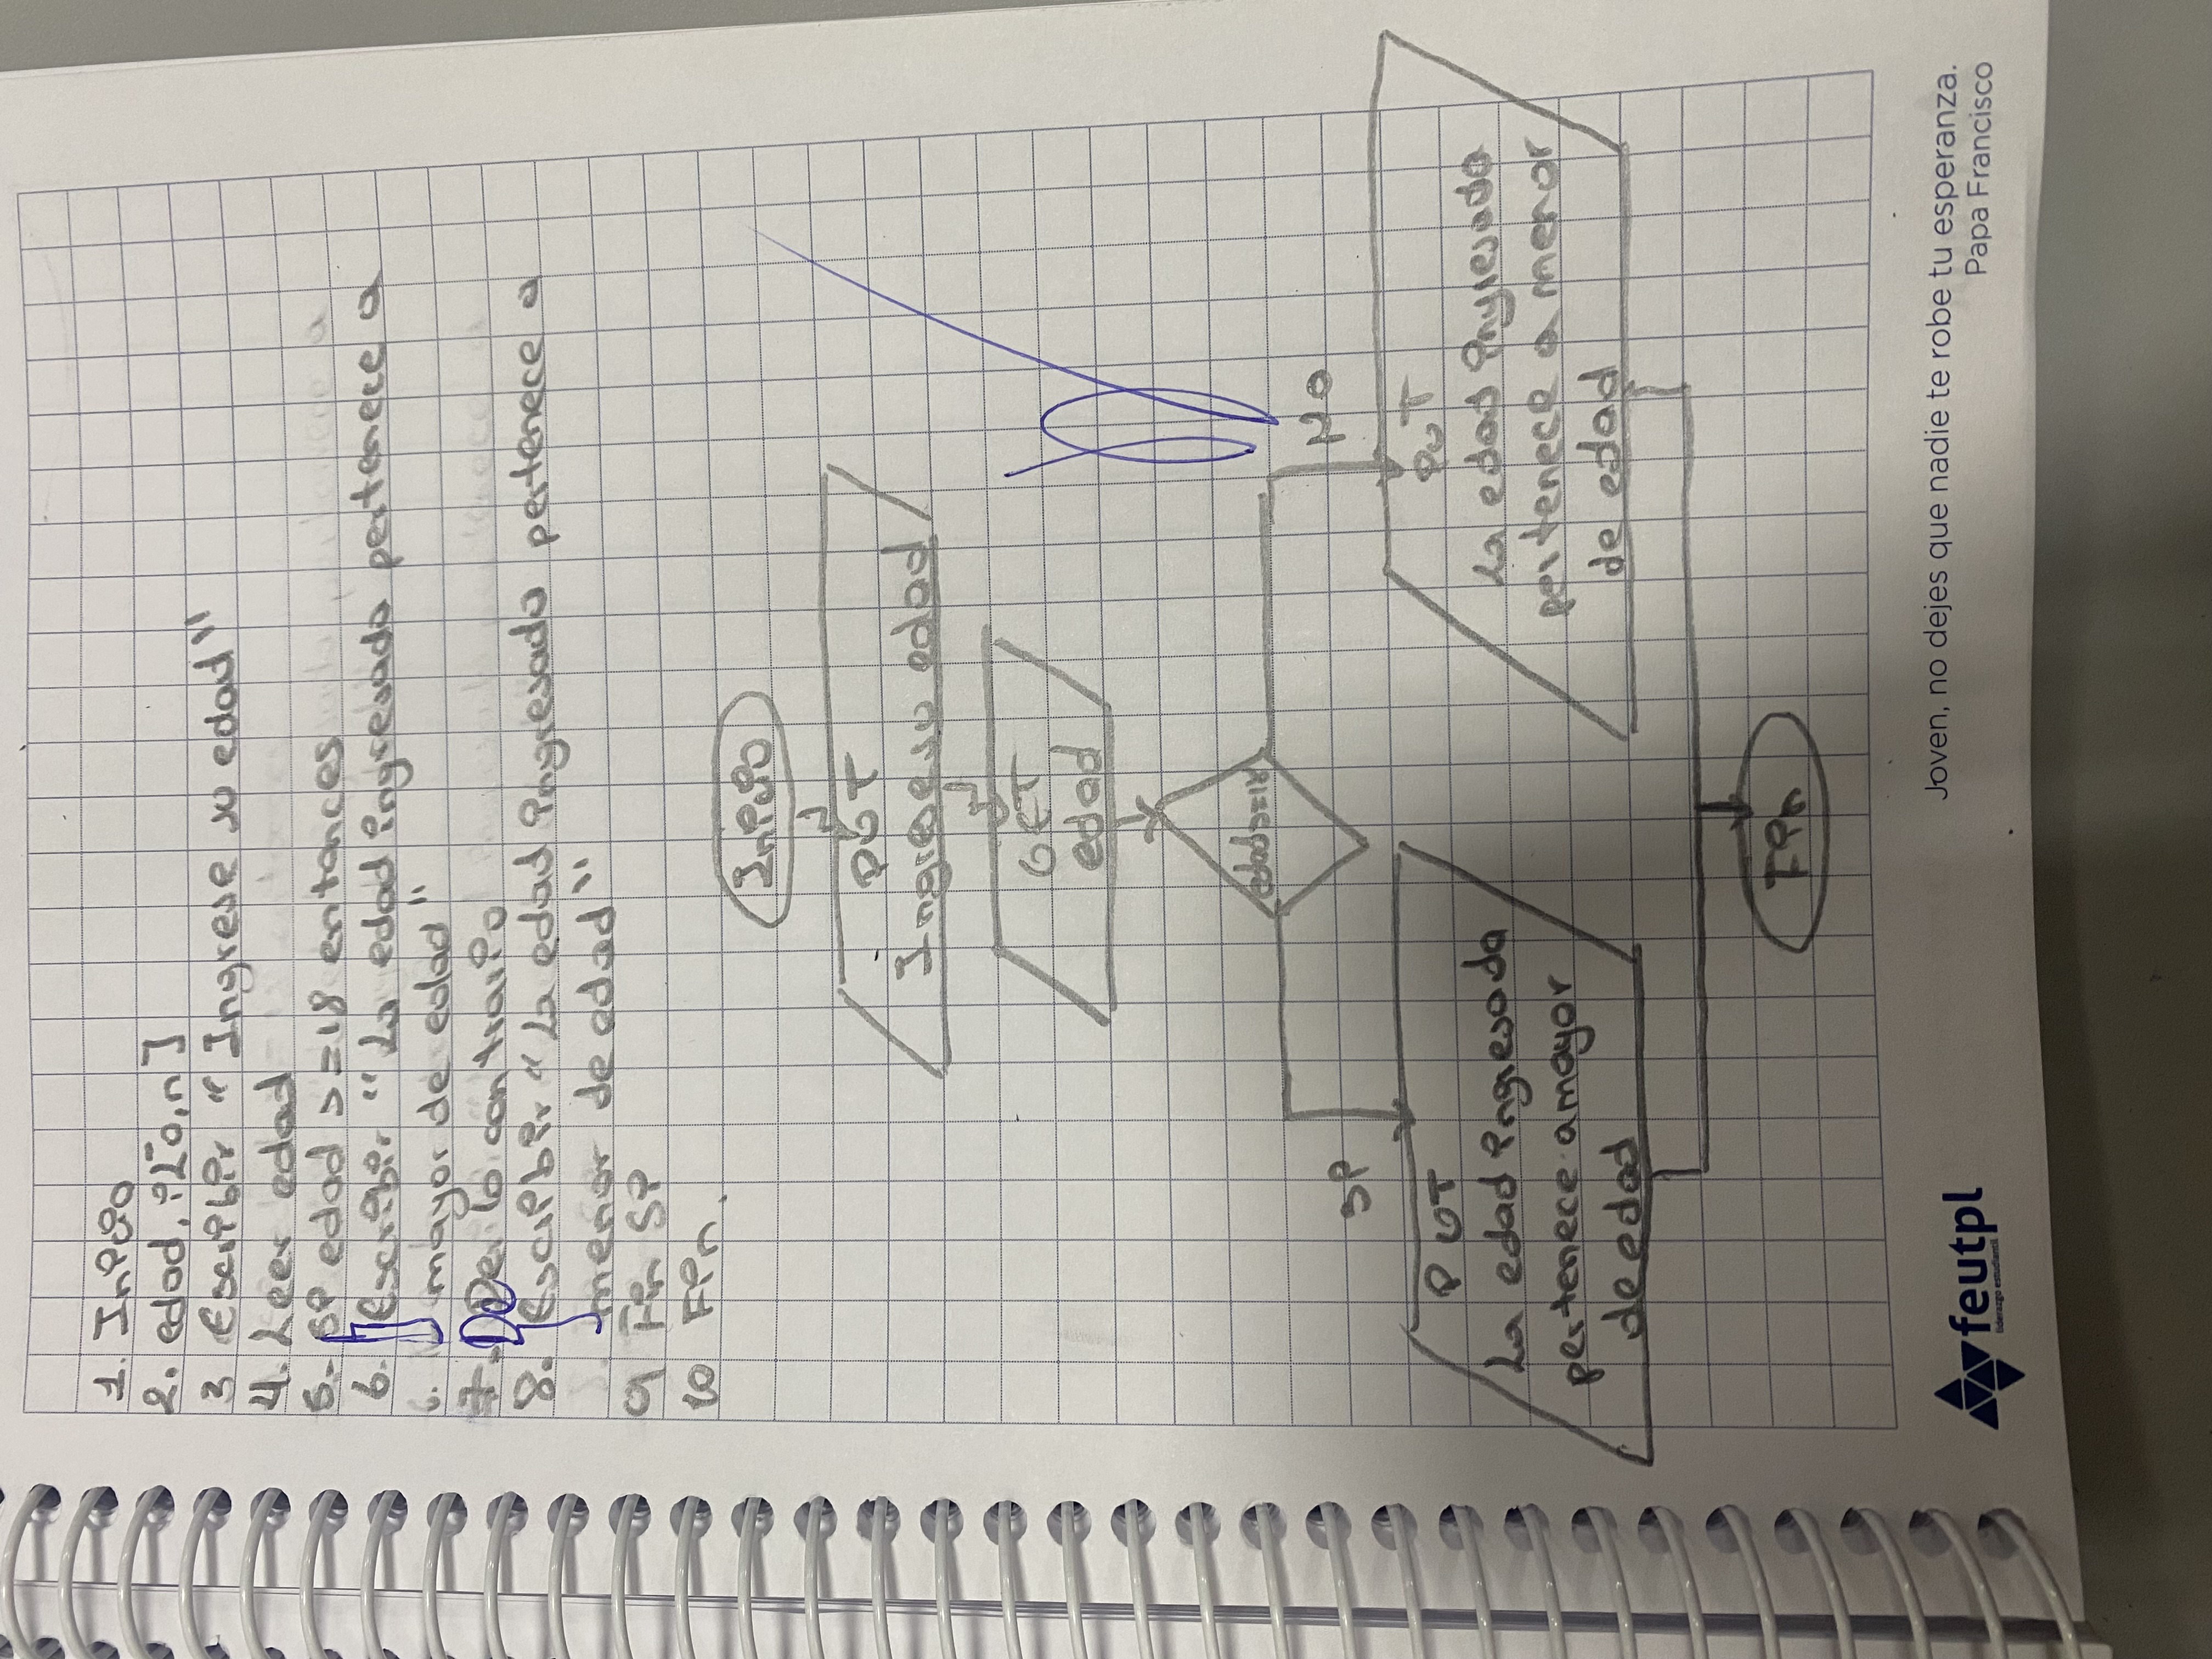 1. Inicio
2. edad, i[0,n]
3 Escribir "Ingrese su edad"
4. Leer edad
5. Si edad >=18 entonces
6. Escribir "La edad ingresada pertenece a
mayor de edad"
7. De lo contrario
8. Escribir "La edad ingresada pertenece a
menor de edad"
9 Fin Si
10 Fin.
Inicio
PUT
Ingrese su edad
GET
edad
edad>=18
Si
NO
PUT
La edad ingresada
pertenece a mayor
de edad
PUT
La edad ingresada
pertenece a menor
de edad
Fin
Joven, no dejes que nadie te robe tu esperanza.
Papa Francisco
feutpl
liderazgo estudiantil